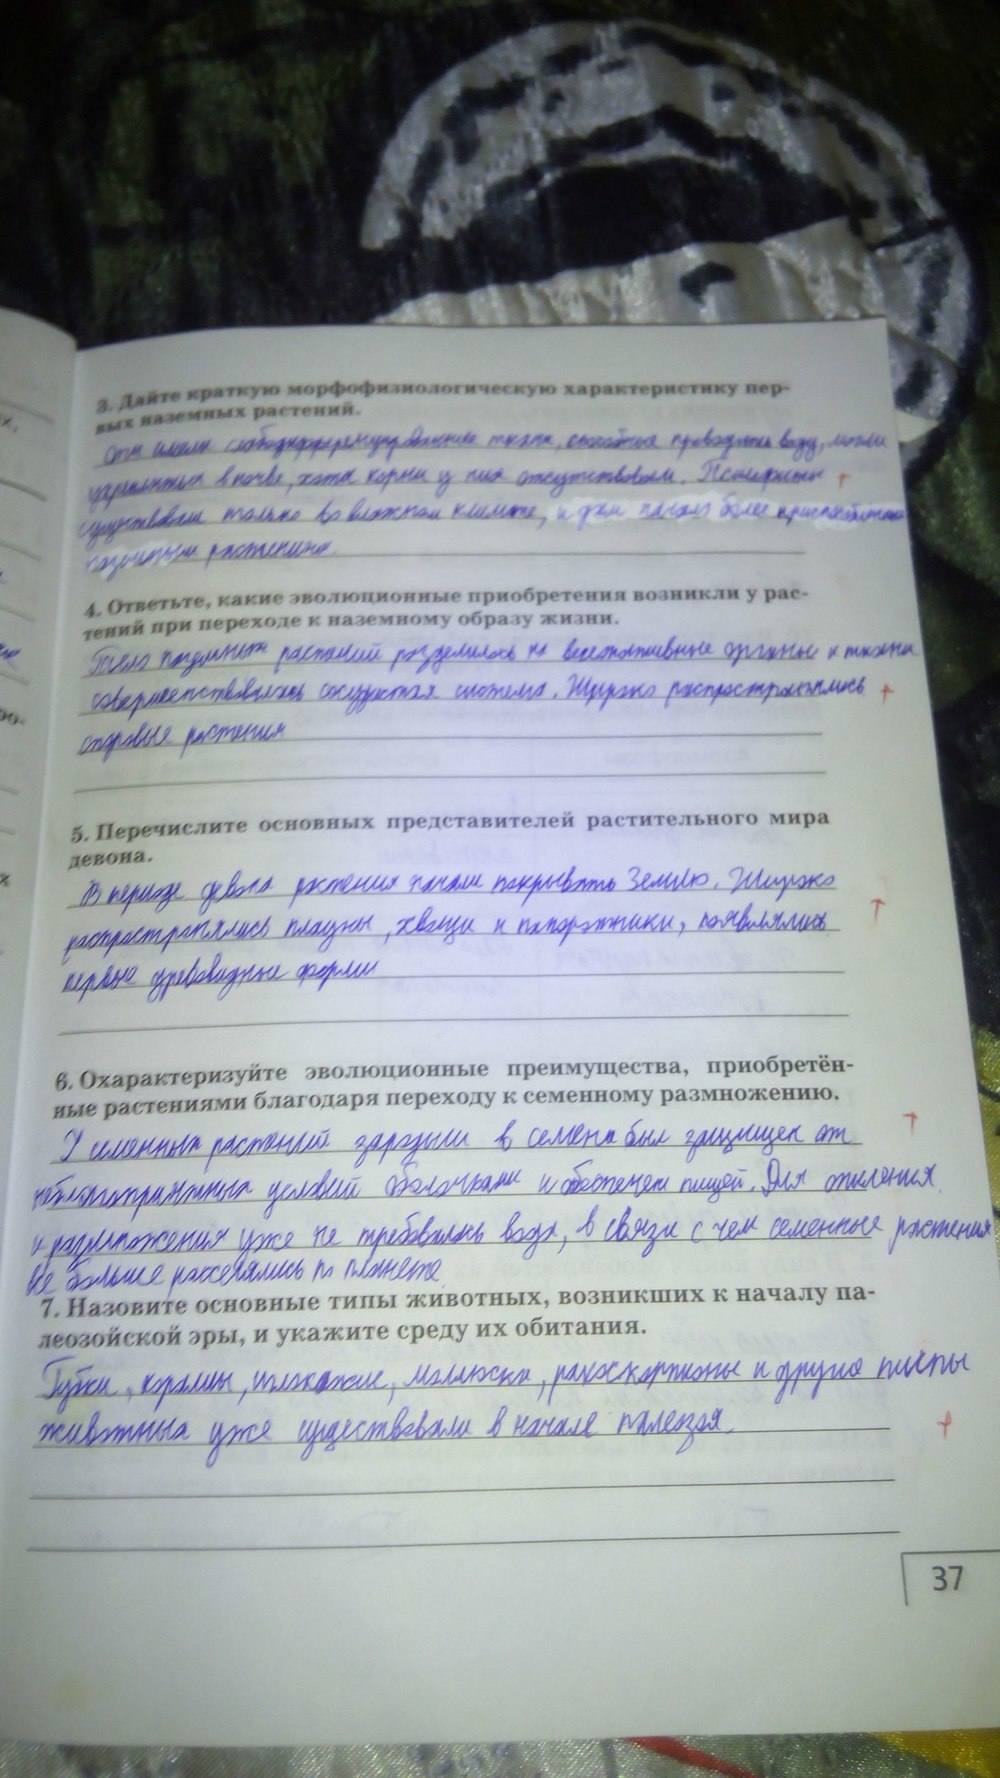 3. Дайте краткую морфофизиологическую характеристику пер-
вых наземных растений.
Они имели слабодифференцированные ткани, способные проводить воду, могли
укрепиться в почве, хотя корни у них отсутствовали. Псилофиты +
существовали только во влажном климате, и дали начало более приспособленным
растениям.
4. Ответьте, какие эволюционные приобретения возникли у рас-
тений при переходе к наземному образу жизни.
Тело наземных растений разделилось на вегетативные органы и ткани
совершенствовалась сосудистая система. Широко распространились +
споровые растения
5. Перечислите основных представителей растительного мира
девона.
В периоде девона растения начали покрывать Землю. Широко
распространялись плауны, хвощи и папоротники, появлялись +
первые древовидные формы
6. Охарактеризуйте эволюционные преимущества, приобретён-
ные растениями благодаря переходу к семенному размножению.
У семенных растений зародыш в семени был защищен от +
неблагоприятных условий оболочками и обеспечен пищей. Для
и размножения уже не требовалась вода, в связи с чем семенные растения
все больше расселялись по планете
7. Назовите основные типы животных, возникших к началу па-
леозойской эры, и укажите среду их обитания.
Губки, кораллы, иглокожие, моллюски, ракоскорпионы и другие типы
животных уже существовали в начале палеозоя. +
37